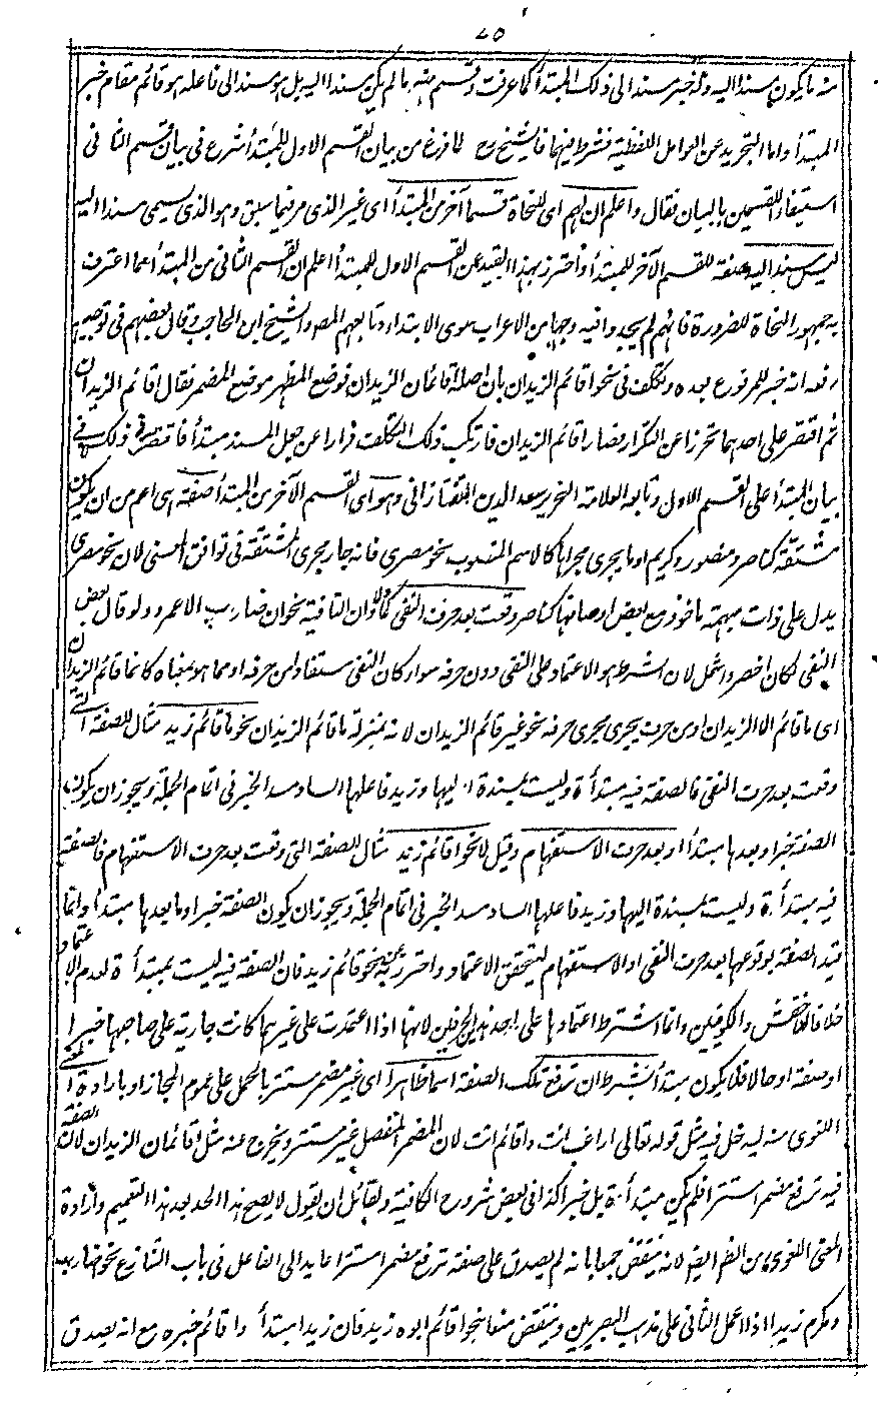 ٤٥
منه ما يكون مسندا اليه وله خبر مسندا الى ذلك المبتدأ كما عرفت وقسم منه ما لم يكن مسندا اليه بل هو مسند الى فاعله هو قائم مقام خبر
المبتدأ واما التجريد عن العوامل اللفظية فشرط فيهما فالشيخ رح لما فرغ من بيان القسم الاول للمبتدأ شرع فى بيان قسم الثانى
استيفاء للقسمين بالبيان فقال واعلم ان لهم اى للنحاة قسما آخر من المبتدأ اى غير الذى مر فيما سبق وهو الذى يسمى مسندا اليه
ليس بسند اليه صفة للقسم الآخر للمبتدأ واحترز بهذا القيد عن القسم الاول للمبتدأ اعلم ان القسم الثانى من المبتدأ مما اعترف
به جمهور النحاة للضرورة فانهم لم يجدوا فيه وجها من الاعراب سوى الابتداء وتابعهم المص والشيخ ابن الحاجب وقال بعضهم فى توجيه
رفعه انه خبر للمرفوع بعده وتكلف فى نحو اقائم الزيدان بان اصله اقائمان الزيدان فوضع المظهر موضع المضمر فقال اقائم الزيدان
ثم اقتصر على احدهما تحرزا عن التكرار فصار اقائم الزيدان فارتكب ذلك التكلف فرارا عن جعل المسند مبتدأ فاقتصر فى ذلك فى
بيان المبتدأ على القسم الاول وتابعه العلامة النحرير سعد الدين التفتازانى وهو اى القسم الآخر من المبتدأ صفة اى اعم من ان يكون
مشتقة كناصر ومنصور وكريم او ما يجرى مجراها كالاسم المنسوب نحو مصرى فانه جار مجرى المشتقة فى توافق المعنى لان نحو مصرى
يدل على ذات مبهمة ماخوذ مع بعض اوصافها كناصر وقعت بعد حرف النفى كما ولا وان النافية نحو ان ضارب الا عمرو ولو قال بعض
النفى لكان اخصر واشمل لان الشرط هو الاعتماد على النفى دون حرفه سواء كان النفى مستفادا من حرفه او مما هو بمعناه كانما قائم الزيدان
اى ما قائم الا الزيدان او من حرف يجرى مجرى حرفه نحو غير قائم الزيدان لانه بمنزلة ما قائم الزيدان نحو ما قائم زيد مثال للصفة التى
وقعت بعد حرف النفى فالصفة فيه مبتدأة وليست بمسندة اليها وزيد فاعلها الساد مسد الخبر فى اتمام الجملة ويجوز ان يكون
الصفة خبرا وبعدها مبتدأ او بعد حرف الاستفهام وقيل لا نحو اقائم زيد مثال للصفة التى وقعت بعد حرف الاستفهام فالصفة
فيه مبتدأة وليست بمسندة اليها وزيد فاعلها الساد مسد الخبر فى اتمام الجملة ويجوز ان يكون الصفة خبرا وما بعدها مبتدأ وانما
قيد الصفة بوقوعها بعد حرف النفى او الاستفهام ليتحقق الاعتماد واحترز به عن نحو قائم زيد فان الصفة فيه ليست بمبتدأة لعدم الاعتماد
خلافا للاخفش والكوفيين وانما اشترط اعتمادها على احد هذين الحرفين لانها اذا اعتمدت على غيرهما كانت جارية على صاحبها خبرا
او صفة او حالا فلا يكون مبتدأ بشرط ان ترفع تلك الصفة اسما ظاهرا اى غير مضمر مستتر بالحمل على عموم المجاز او بارادة المعنى
اللغوى منه ليدخل فيه مثل قوله تعالى اراغب انت واقائم انت لان المضمر المنفصل غير مستتر ويخرج عنه مثل اقائمان الزيدان لان الصفة
فيه ترفع مضمرا مستترا فلم يكن مبتدأة بل خبرا كذا فى بعض شروح الكافية ولقائل ان يقول لا يصح هذا الحد بعد هذا التعميم وارادة
المعنى اللغوى من الظم ايضا لانه ينتقض جمعا بانه لم يصدق على صفة ترفع مضمرا مستترا عايدا الى الفاعل فى باب التنازع نحو اضارب
ومكرم زيدا اذا اعمل الثانى على مذهب البصريين وينتقض منعا بنحو اقائم ابوه زيد فان زيدا مبتدأ واقائم خبره مع انه يصدق